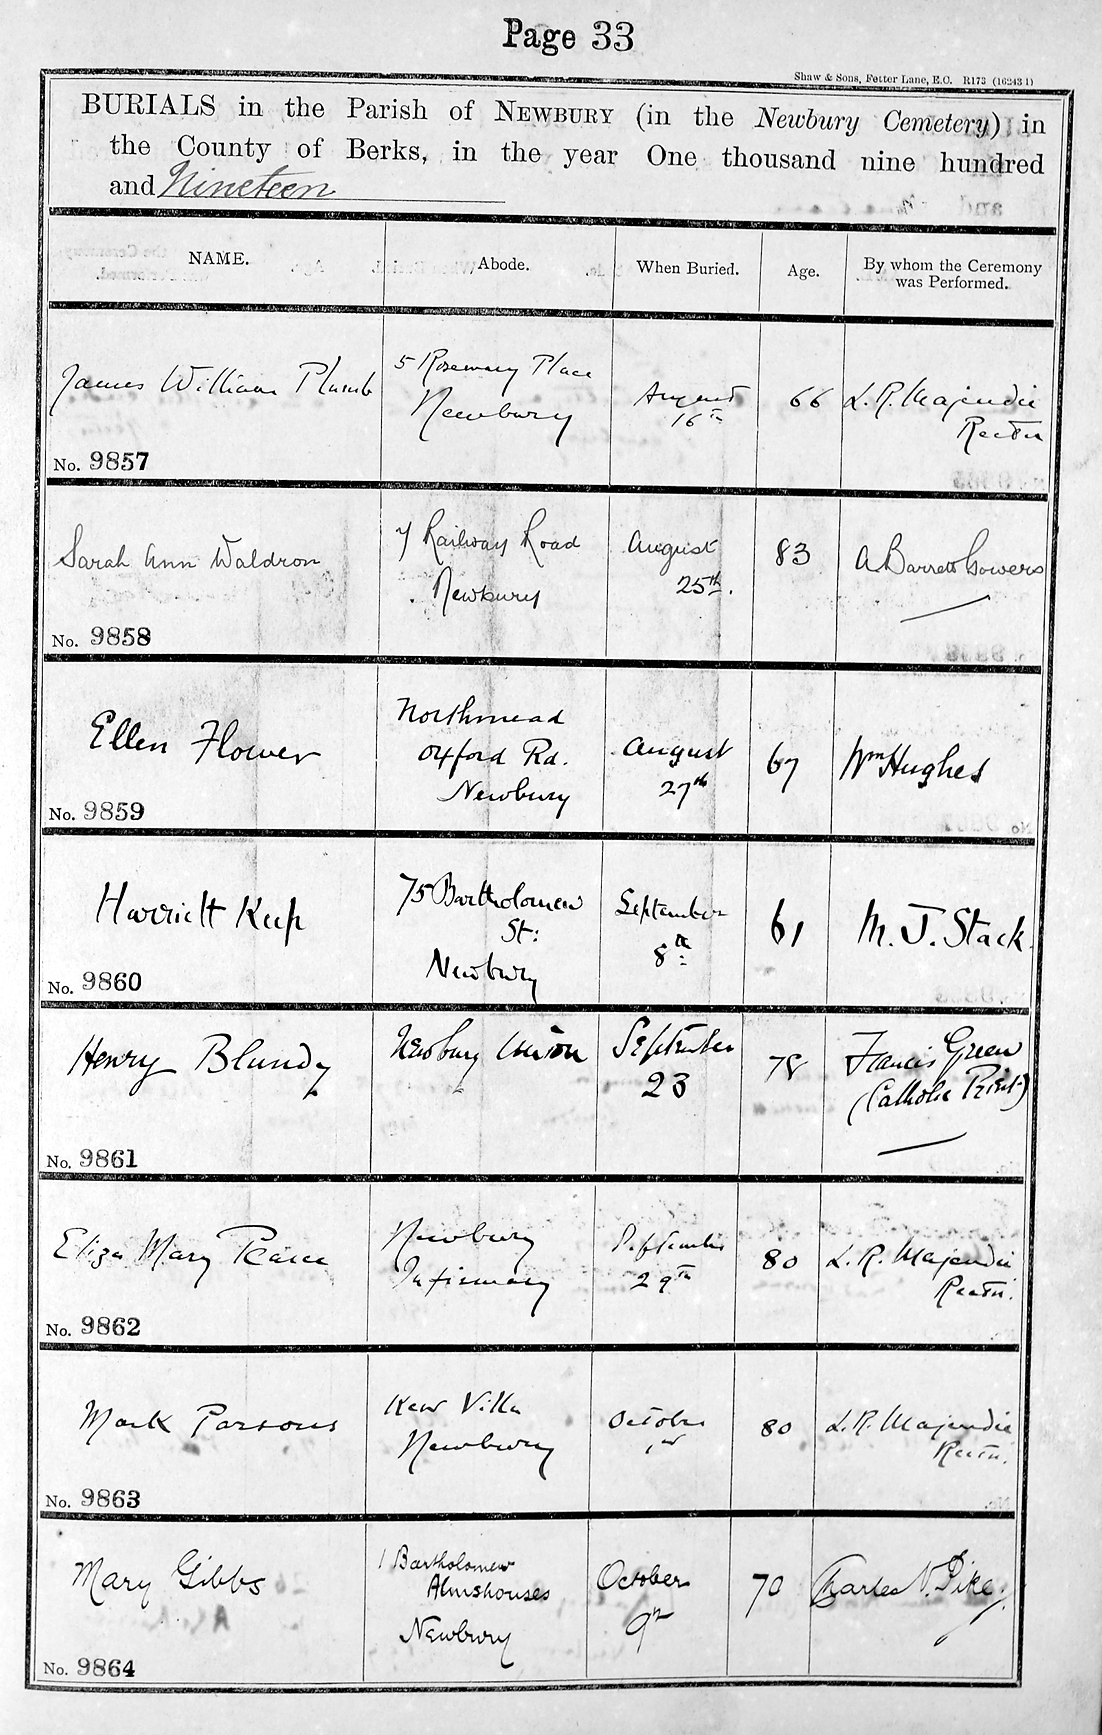 Page 33
Shaw & Sons, Fetter Lane, E.C. R173 (16243 1)
BURIALS in the Parish of NEWBURY (in the Newbury Cemetery) in
the County of Berks, in the year One thousand nine hundred
and Nineteen
NAME. Abode. When Buried. Age. By whom the Ceremony
was Performed.
James William Plumb
5 Rosemary Place
Newbury
August
16th
66
L. R. Majendie
Rector
No. 9857
Sarah Ann Waldron
7 Railway Road
Newbury
August
25th.
83
A Barrett Gowers
No. 9858
Ellen Flower
Northmead
Oxford Rd.
Newbury
August
27th
67
Wm Hughes
No. 9859
Harriett Keep
75 Bartholomew
St:
Newbury
September
8th
61
M. J. Stack
No. 9860
Henry Blundy
Newbury Union
September
23
78
Francis Green
(Catholic Priest)
No. 9861
Eliza Mary Pearce
Newbury
Infirmary
September
29th
80
L. R. Majendie
Rector.
No. 9862
Mark Parsons
Kew Villa
Newbury
October
1st
80
L. R. Majendie
Rector.
No. 9863
Mary Gibbs
1 Bartholomew
Almshouses
Newbury
October
9th
70
Charles N. Pike.
No. 9864